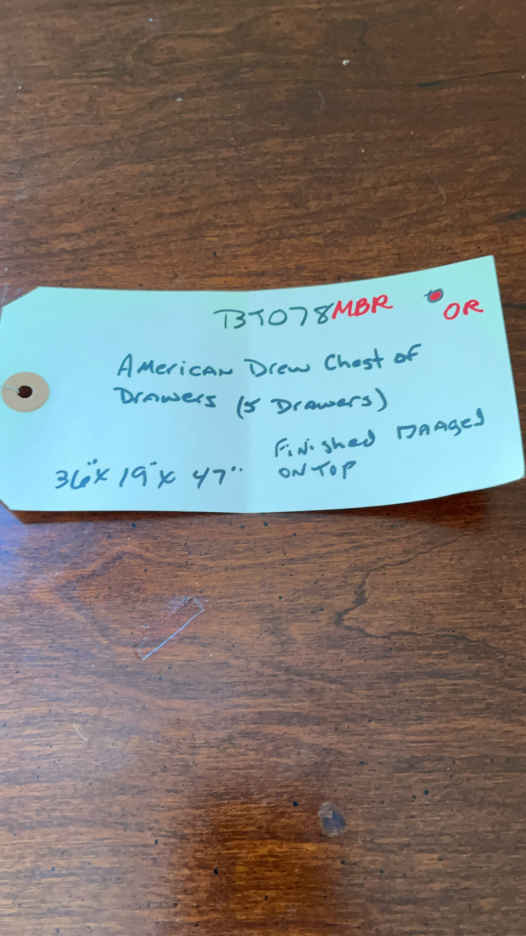 BJ078 MBR OR
American Drew Chest of
Drawers (5 Drawers)
Finished Damaged
36"x 19"x 47" ON TOP